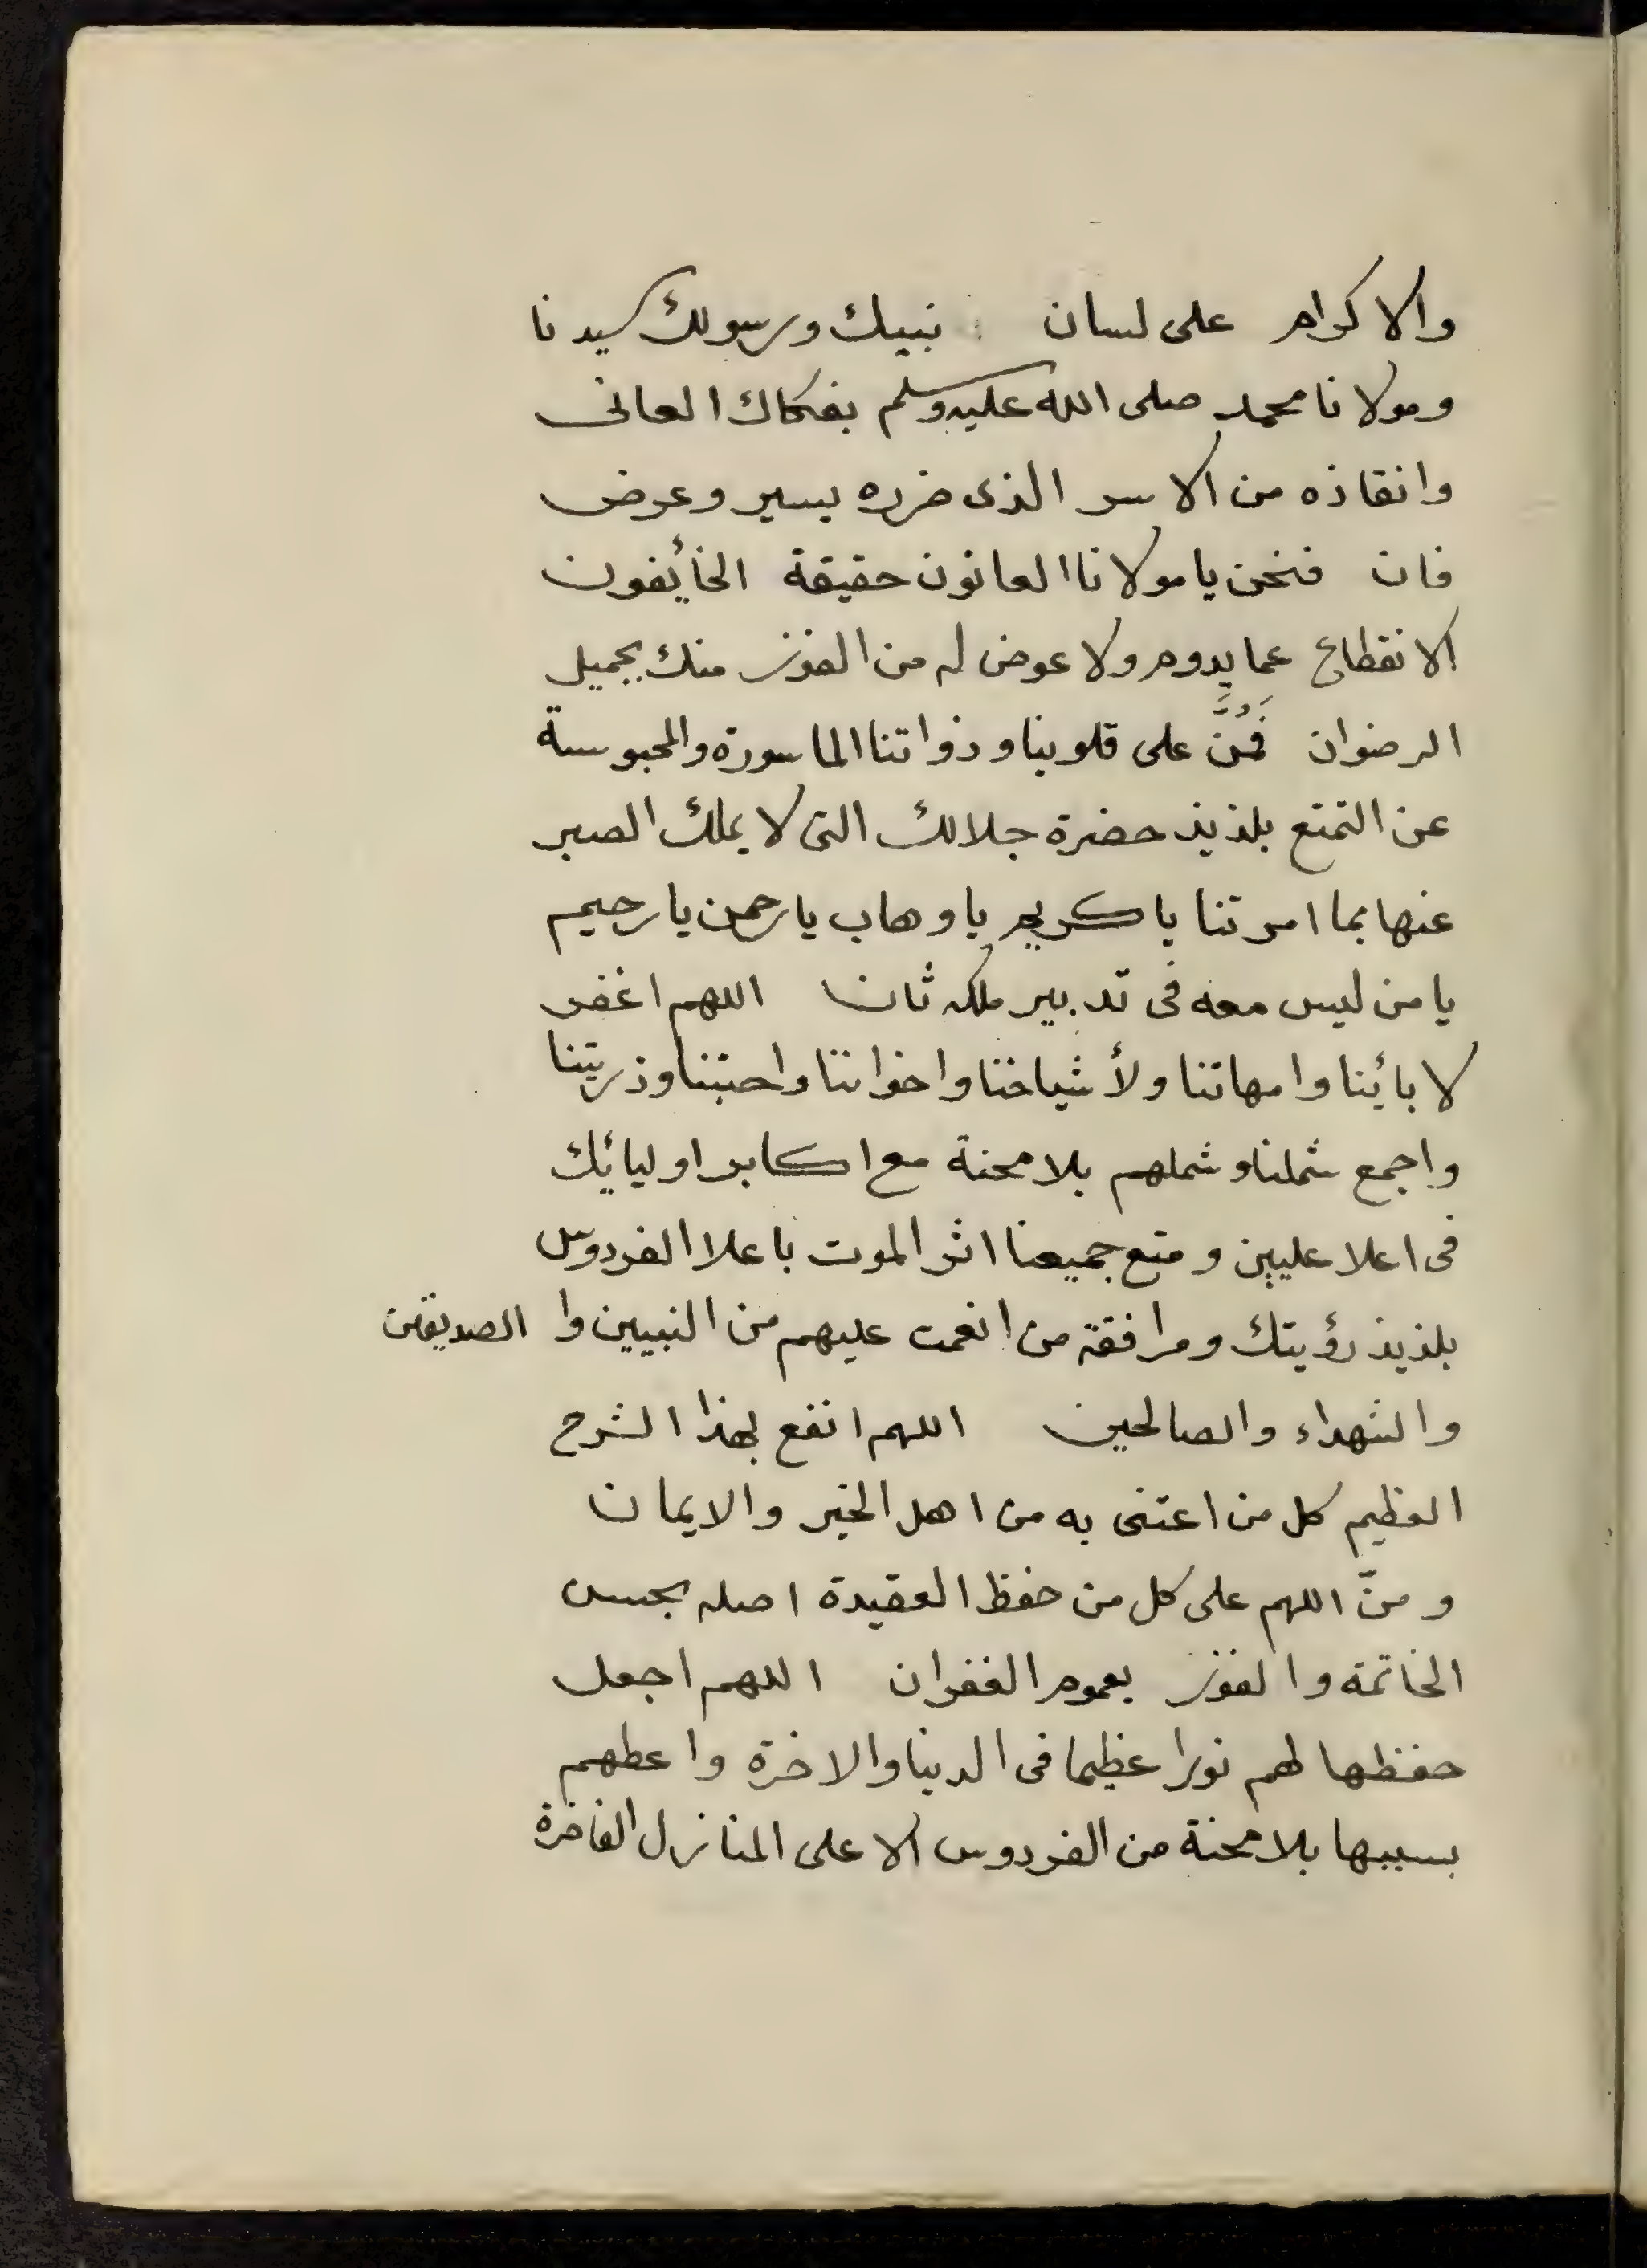 والاكرام على لسان نبيك ورسولك سيدنا
ومولانا محمد صلى الله عليه وسلم بفكاك العانى
وانقاذه من الاسر الذى ضرره يسير وعرض
فان فنحن يا مولانا العانون حقيقة الخأيفون
الانقطاع عما يدوم ولا عوض له من الفوز منك بجميل
الرضوان فَمُنَّ على قلوبنا وذواتنا الماسورة والمحبوسة
عن التمتع بلذيذ حضرة جلالك التى لا يملك الصبر
عنها بما امرتنا يا كريم يا وهاب يا رحمن يا رحيم
يا من ليس معه فى تدبير ملكه ثان اللهم اغفر
لابائنا وامهاتنا ولأشياخنا واخواننا واحبتنا وذريتنا
واجمع شملنا وشملهم بلا محنة مع اكابر اوليائك
فى اعلا عليين ومتع جميعنا اثر الموت باعلا الفردوس
بلذيذ رؤيتك ومرافقة من انعمت عليهم من النبيين وا الصديقين
والشهداء والصالحين اللهم انفع بهذا الشرح
العظيم كل من اعتنى به من اهل الخير والايمان
ومنّ اللهم على كل من حفظ العقيدة اصله بحسن
الخاتمة والفوز بعموم الغفران اللهم اجعل
حفظها لهم نورا عظيما فى الدينا والاخرة واعطهم
بسببها بلا محنة من الفردوس الاعلى المنازل الفاخرة